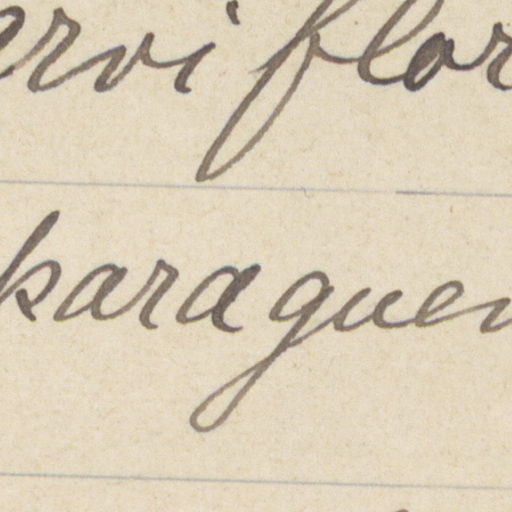 erviflor
paraguen